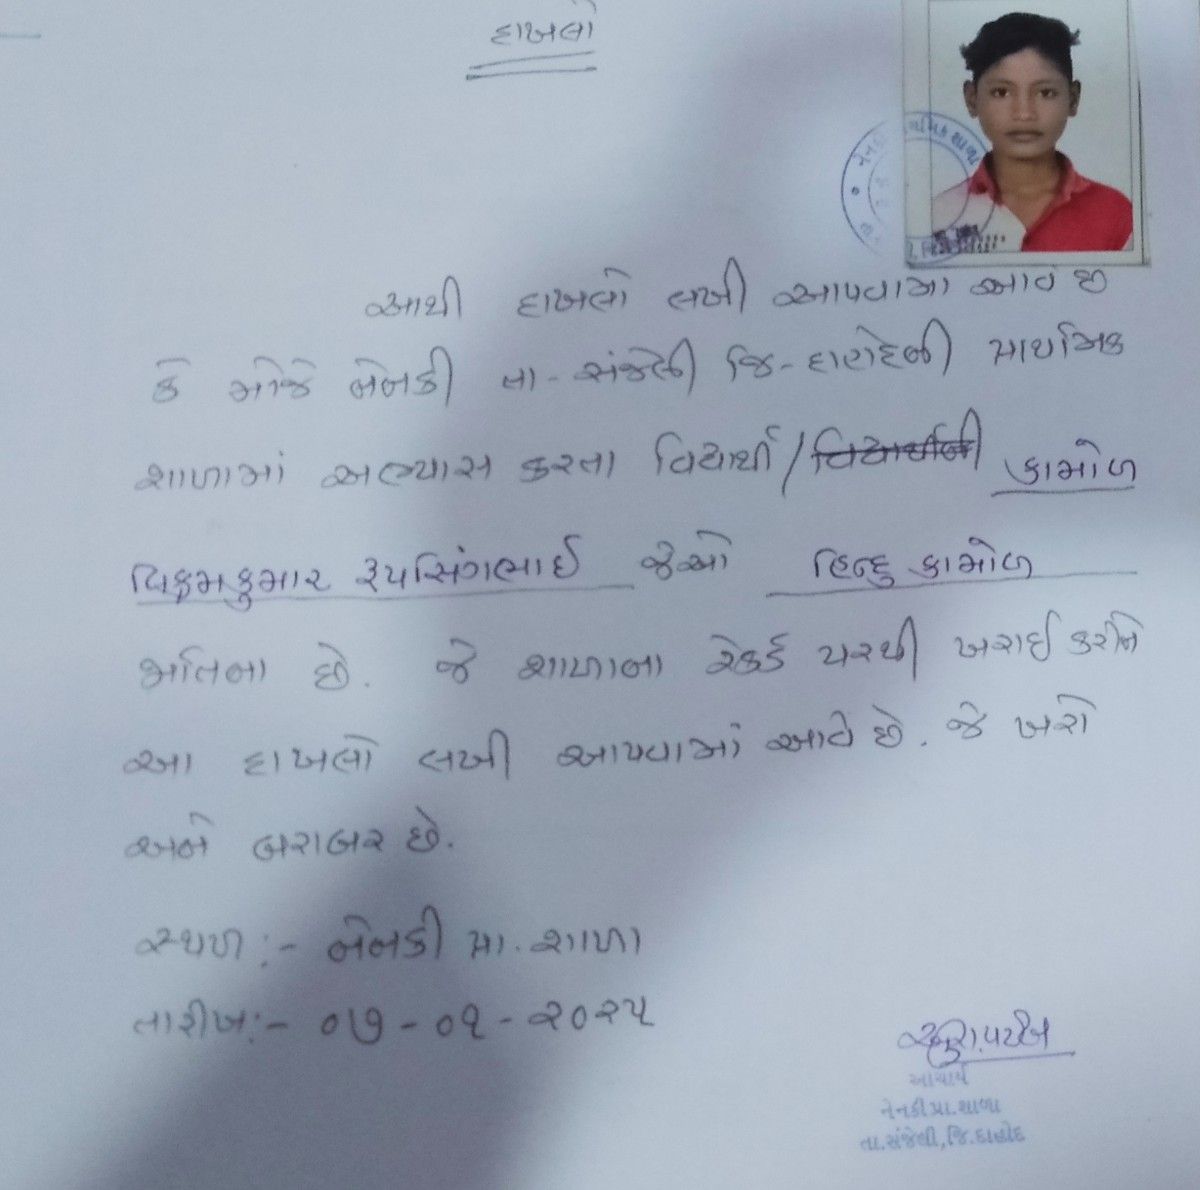 દાખલો
આથી દાખલો લખી આપવામા આવે છે
કે મોજે નેનકી તા - સંજેલી જિ - દાહોદની પ્રાથમિક
શાળામાં અભ્યાસ કરતા વિદ્યાર્થી / વિદ્યાર્થીની કામોળ
વિક્રમકુમાર રૂપસિંગભાઈ જેઓ હિન્દુ કામોળ
જાતિના છે. જે શાળાના રેકર્ડ પરથી ખરાઈ કરીને
આ દાખલો લખી આપવામાં આવે છે. જે ખરો
અને બરાબર છે.
સ્થળ :- નેનકી પ્રા. શાળા
તારીખ:- ૦૭ - ૦૧ - ૨૦૨૫
આચાર્ય
નેનકી પ્રા. શાળા
તા. સંજેલી, જિ. દાહોદ